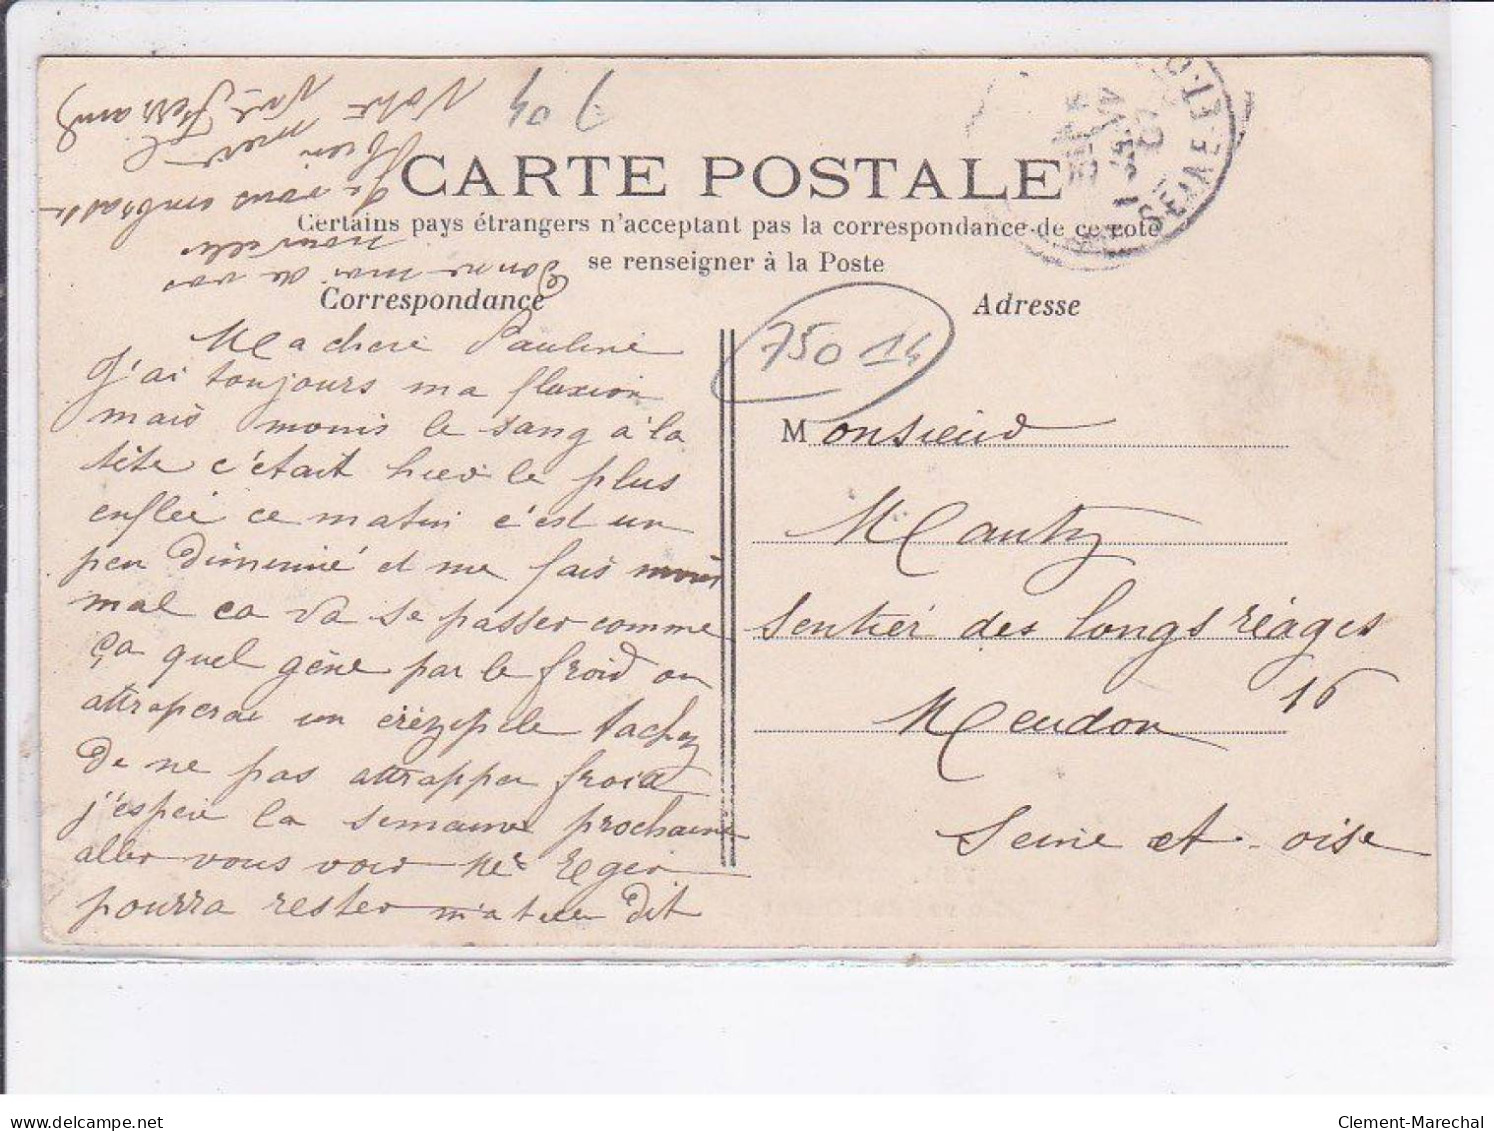 CARTE POSTALE
Certains pays étrangers n'acceptant pas la correspondance de ce côté
se renseigner à la Poste
Correspondance
Adresse
Ma chere Pauline
J'ai toujours ma fluxion
mais moins le sang à la
tête c'était hier le plus
enflée ce matin c'est un
peu diminué et me fais moins
mal ca va se passer comme
ça quel gêne par le froid on
attraperai un érézipèle tachez
De ne pas attrapper froid
j'espere la semaine prochaine
aller vous voir Mr Eger
pourra rester m'a t-elle dit
Donne moi de vos
nouvelles
Je vous embrasse
bien
Votre
704
75014
Monsieur
Mauty
Sentier des longs réages
16
Meudon
Seine et oise
SEINE-ET-O
07
delcampe.net
Clement-Marechal